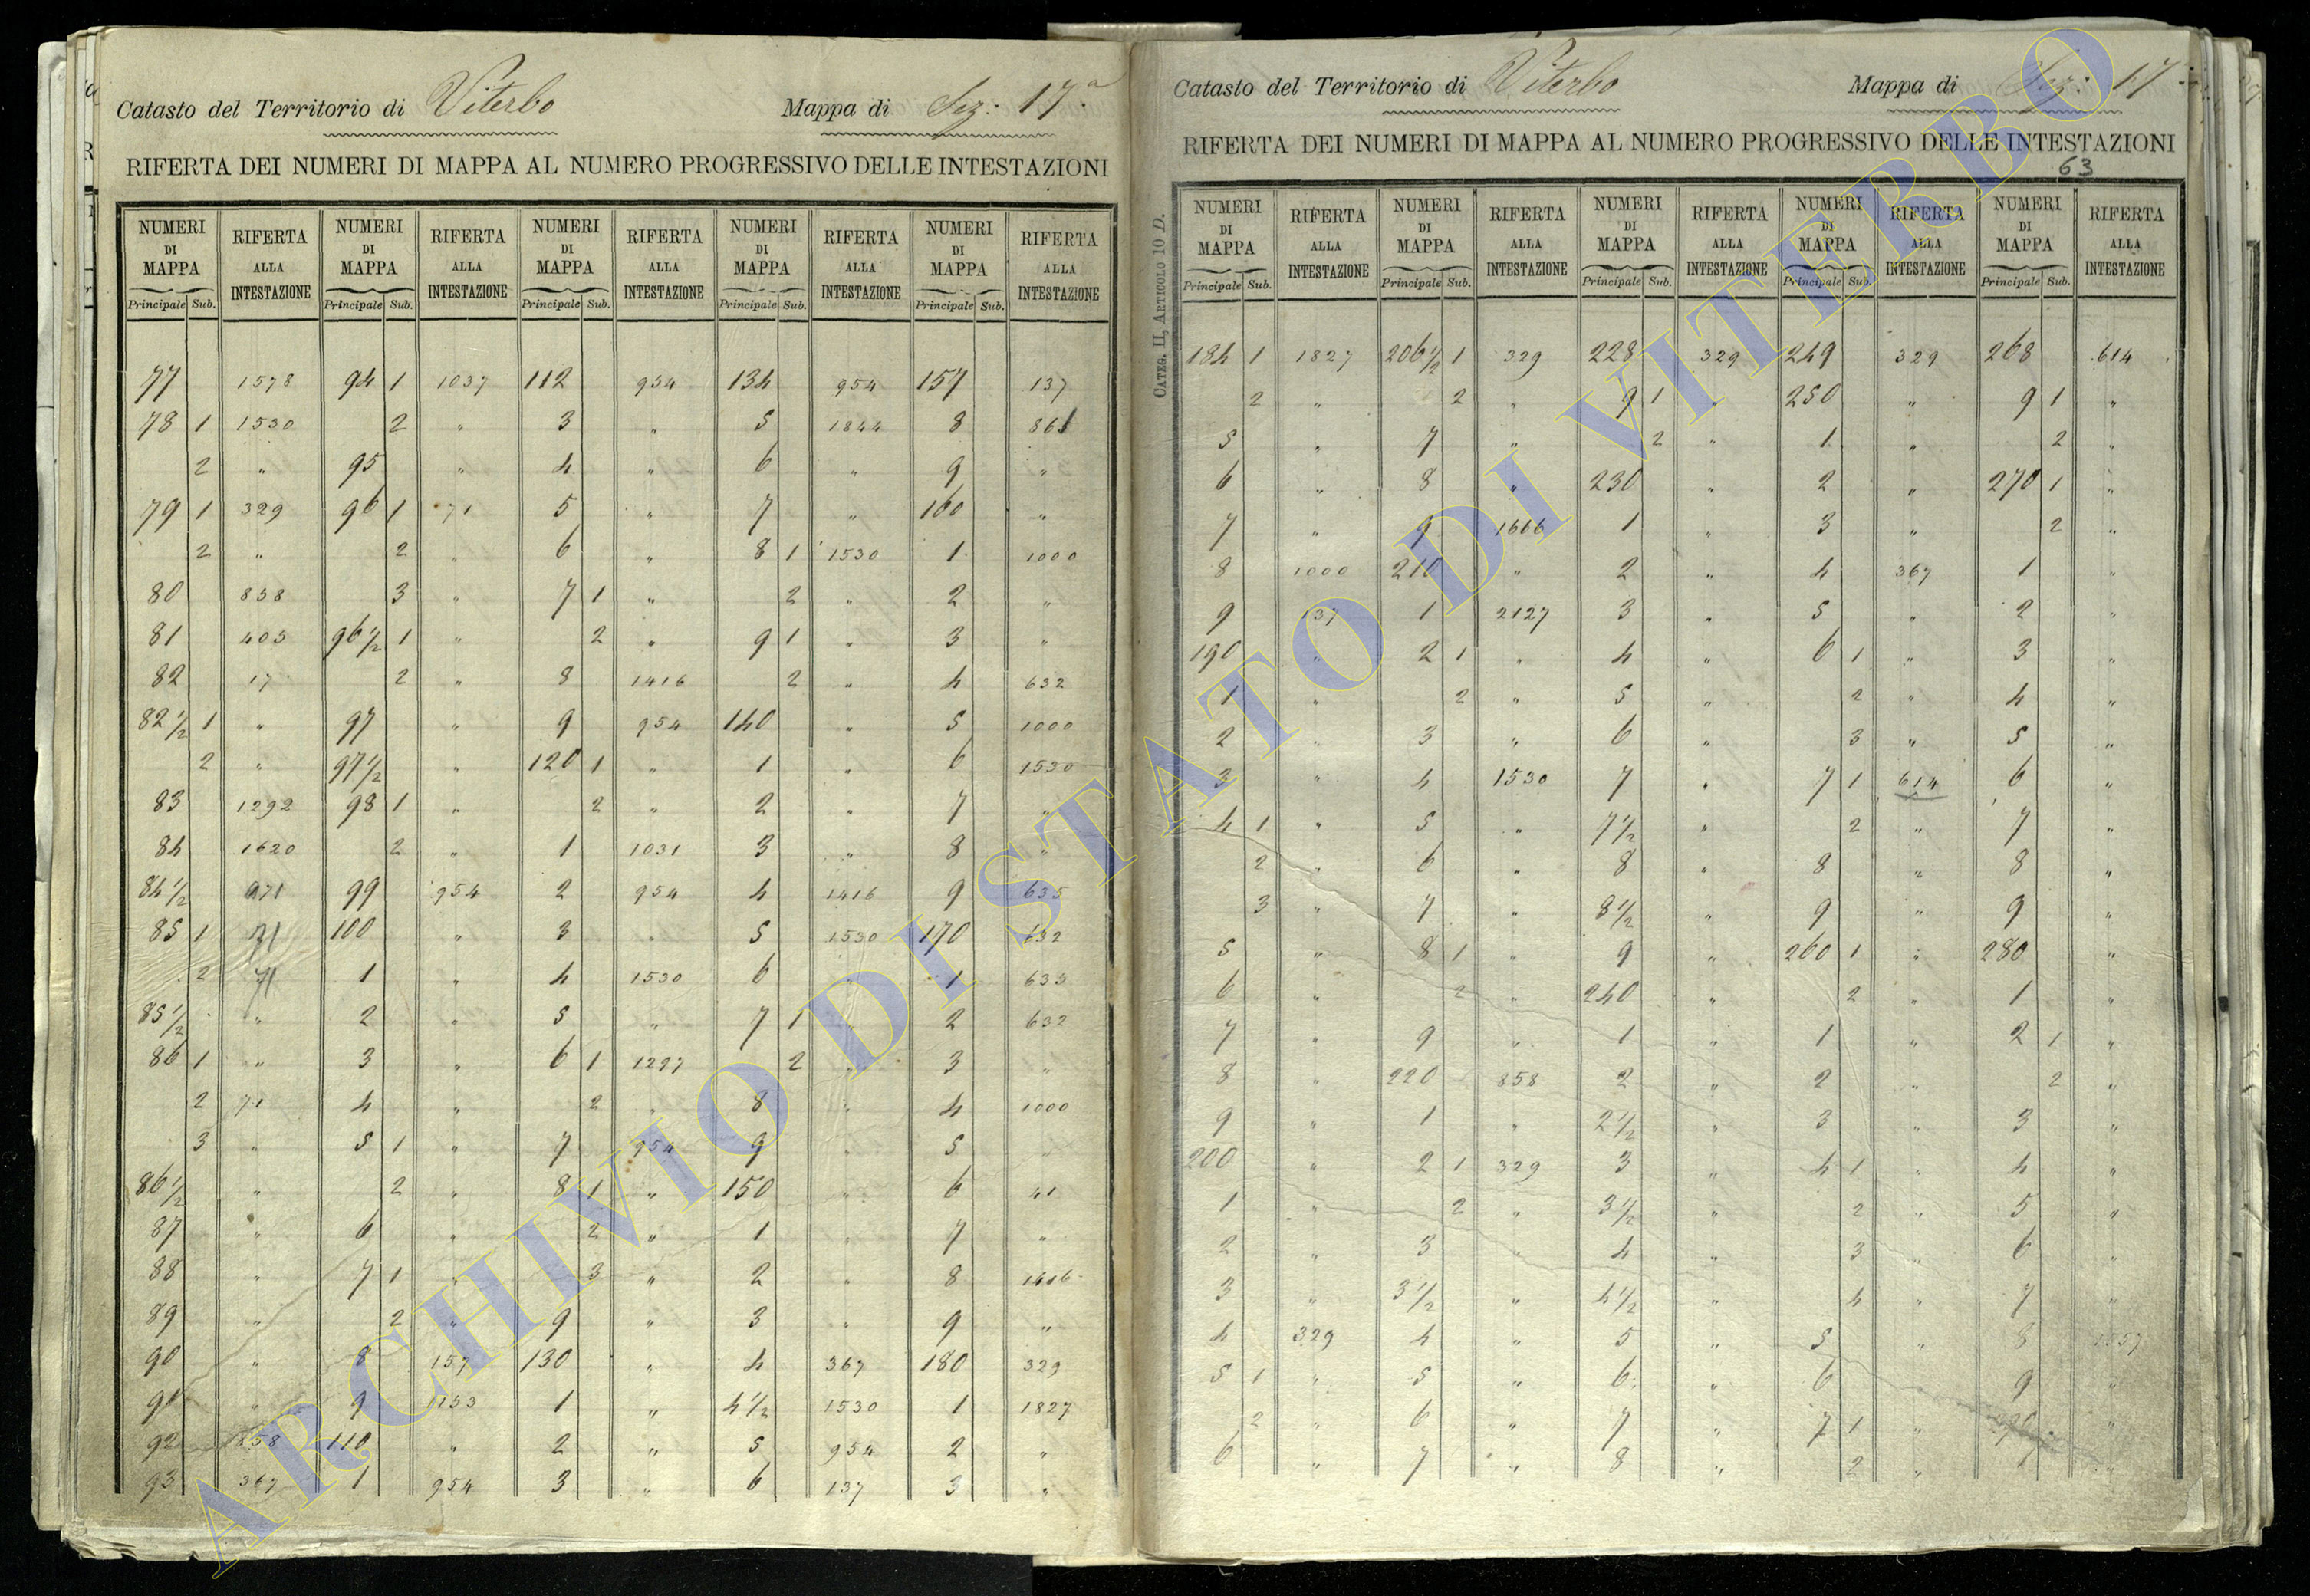 Catasto del Territorio di Viterbo Mappa di Sez: 17.a
RIFERTA DEI NUMERI DI MAPPA AL NUMERO PROGRESSIVO DELLE INTESTAZIONI
NUMERI DI MAPPA RIFERTA ALLA INTESTAZIONE NUMERI DI MAPPA RIFERTA ALLA INTESTAZIONE NUMERI DI MAPPA RIFERTA ALLA INTESTAZIONE NUMERI DI MAPPA RIFERTA ALLA INTESTAZIONE NUMERI DI MAPPA RIFERTA ALLA INTESTAZIONE
Principale Sub. Principale Sub. Principale Sub. Principale Sub. Principale Sub.
77 1578 94 1 1037 112 954 134 954 157 137
78 1 1530 2 " 3 " 5 1844 8 861
2 " 95 " 4 " 6 " 9 "
79 1 329 96 1 71 5 " 7 " 160 "
2 " 2 " 6 " 8 1 1530 1 1000
80 858 3 " 7 1 " 2 " 2 "
81 403 96 1/2 1 " 2 " 9 1 " 3 "
82 17 2 " 8 1416 2 " 4 632
82 1/2 1 " 97 " 9 954 140 " 5 1000
2 " 97 1/2 " 120 1 " 1 " 6 1530
83 1292 98 1 " 2 " 2 " 7 "
84 1620 2 " 1 1031 3 " 8 "
84 1/2 971 99 954 2 954 4 1416 9 635
85 1 71 100 " 3 " 5 1530 170 632
2 71 1 " 4 1530 6 " 1 635
85 1/2 " 2 " 5 " 7 1 " 2 632
86 1 " 3 " 6 1 1297 2 " 3 "
2 71 4 " 2 " 8 " 4 1000
3 " 5 1 " 7 954 9 " 5 "
86 1/2 " 2 " 8 1 " 150 " 6 41
87 " 6 " 2 " 1 " 7 "
88 " 7 1 " 3 " 2 " 8 1416
89 " 2 " 9 " 3 " 9 "
90 " 8 157 130 " 4 367 180 329
91 " 9 153 1 " 4 1/2 1530 1 1827
92 858 110 " 2 " 5 954 2 "
93 367 1 954 3 " 6 137 3 "
Catasto del Territorio di Viterbo Mappa di Sez: 17
RIFERTA DEI NUMERI DI MAPPA AL NUMERO PROGRESSIVO DELLE INTESTAZIONI
63
CATEG. II, ARTICOLO 10 D.
NUMERI DI MAPPA RIFERTA ALLA INTESTAZIONE NUMERI DI MAPPA RIFERTA ALLA INTESTAZIONE NUMERI DI MAPPA RIFERTA ALLA INTESTAZIONE NUMERI DI MAPPA RIFERTA ALLA INTESTAZIONE NUMERI DI MAPPA RIFERTA ALLA INTESTAZIONE
Principale Sub. Principale Sub. Principale Sub. Principale Sub. Principale Sub.
184 1 1827 206 1/2 1 329 228 329 249 329 268 614
2 " 2 " 9 1 " 250 " 9 1 "
5 " 7 " 2 " 1 " 2 "
6 " 8 " 230 " 2 " 270 1 "
7 " 9 1666 1 " 3 " 2 "
8 1000 210 " 2 " 4 367 1 "
9 137 1 2127 3 " 5 " 2 "
190 " 2 1 " 4 " 6 1 " 3 "
1 " 2 " 5 " 2 " 4 "
2 " 3 " 6 " 3 " 5 "
3 " 4 1530 7 " 7 1 614 6 "
4 1 " 5 " 7 1/2 " 2 " 7 "
2 " 6 " 8 " 8 " 8 "
3 " 7 " 8 1/2 " 9 " 9 "
5 " 8 1 " 9 " 260 1 " 280 "
6 " 2 " 240 " 2 " 1 "
7 " 9 " 1 " 1 " 2 1 "
8 " 220 858 2 " 2 " 2 "
9 " 1 " 2 1/2 " 3 " 3 "
200 " 2 1 329 3 " 4 1 " 4 "
1 " 2 " 3 1/2 " 2 " 5 "
2 " 3 " 4 " 3 " 6 "
3 " 3 1/2 " 4 1/2 " 4 " 7 "
4 329 4 " 5 " 5 " 8 1557
5 1 " 5 " 6 " 6 " 9 "
2 " 6 " 7 " 7 1 " 290 "
6 " 7 " 8 " 2 " 1 "
ARCHIVIO DI STATO DI VITERBO